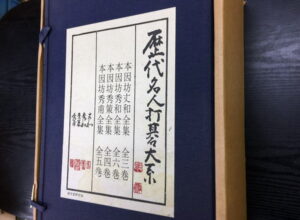 歴代名人打碁大系
本因坊丈和全集 全三巻
本因坊秀和全集 全六巻
本因坊秀策全集 全四巻
本因坊秀甫全集 全五巻